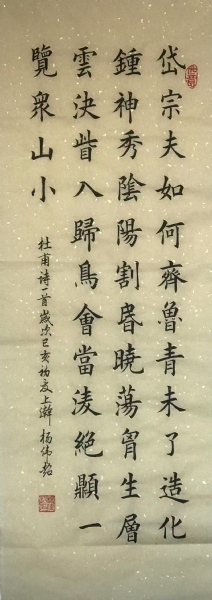 岱宗夫如何齊魯青未了造化
鍾神秀陰陽割昬曉蕩胷生層
雲決眥入歸鳥會當淩絕顚一
覽衆山小
杜甫诗一首歲次己亥初夏上澣楊偉